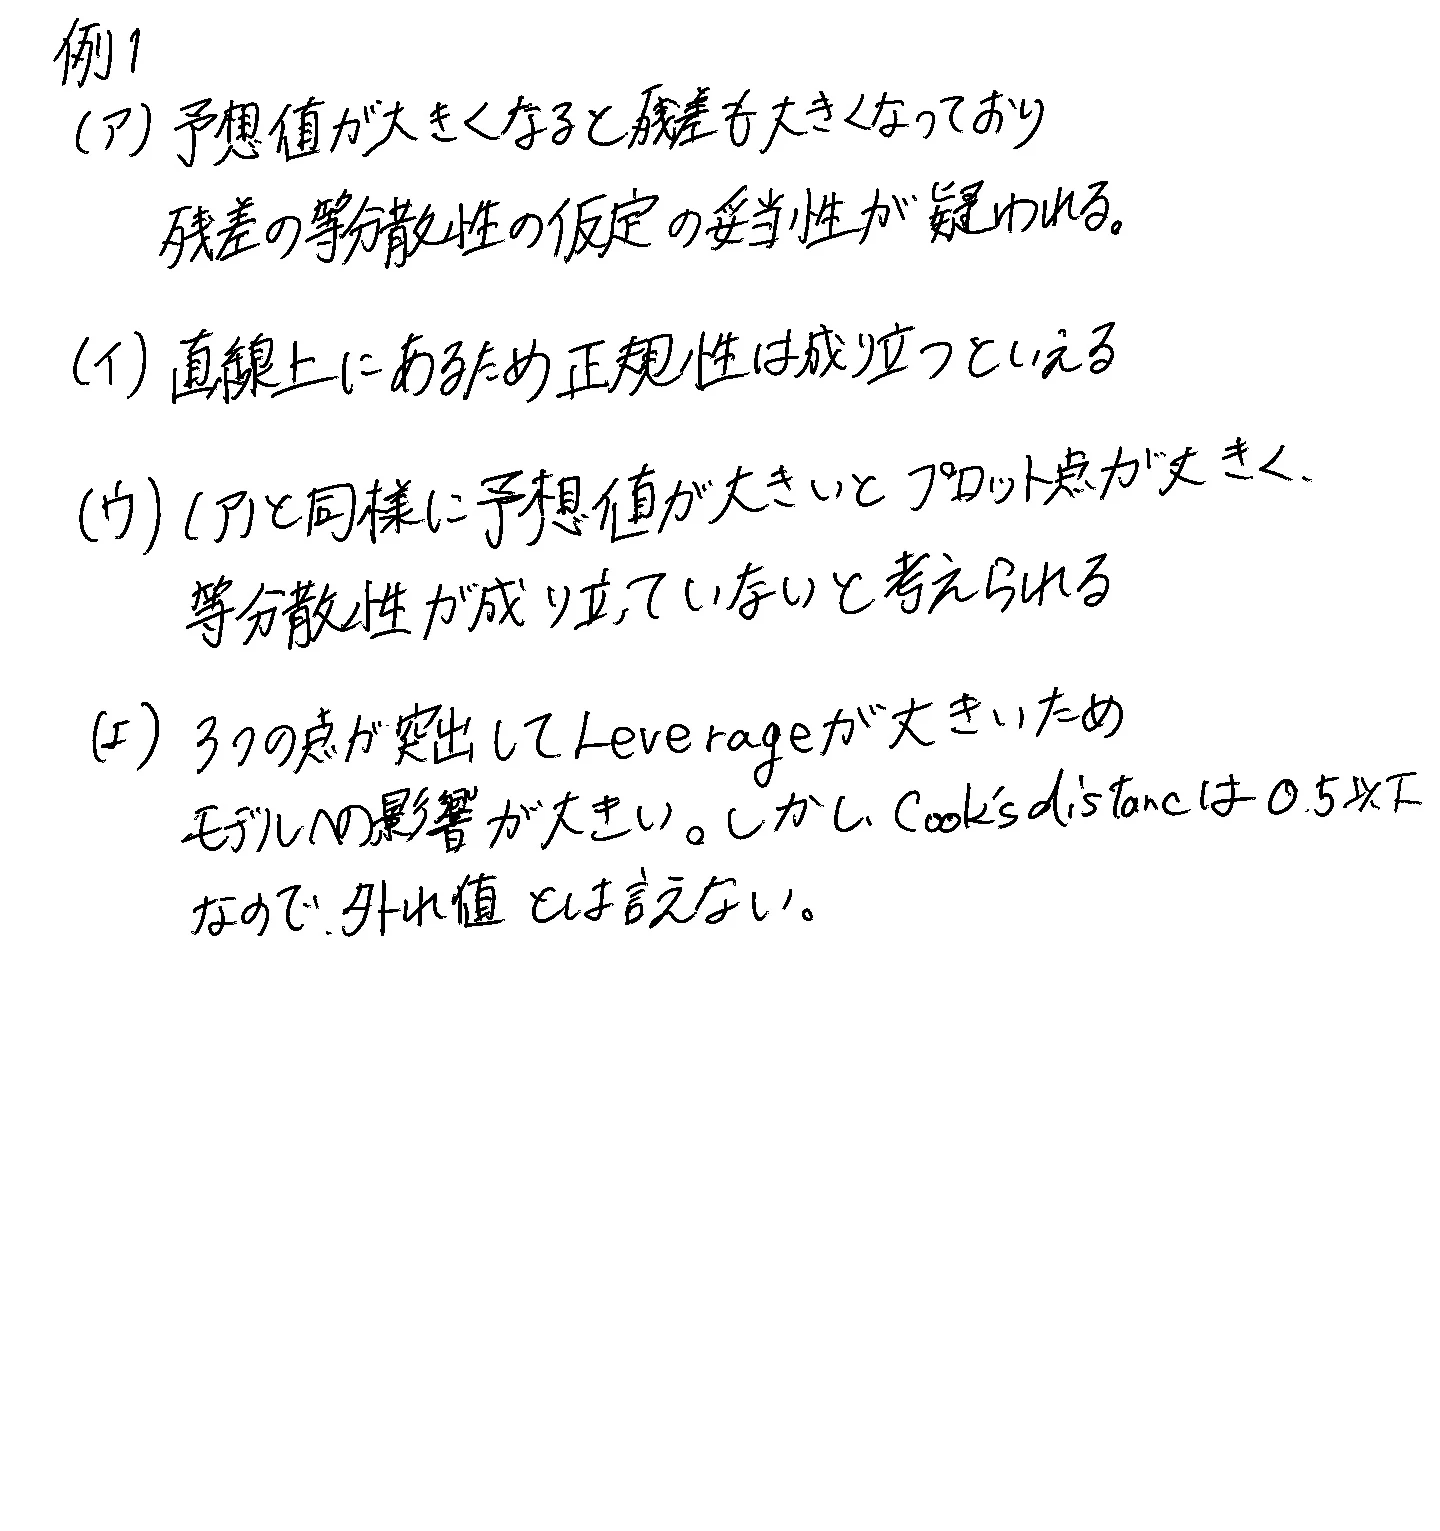 例1
(ア) 予想値が大きくなると残差も大きくなっており
残差の等分散性の仮定の妥当性が疑われる。
(イ) 直線上にあるため正規性は成り立つといえる
(ウ) (ア)と同様に予想値が大きいとプロット点が大きく、
等分散性が成り立っていないと考えられる
(エ) 3つの点が突出してLeverageが大きいため
モデルへの影響が大きい。しかし、Cook's distancは0.5以下
なので、外れ値とは言えない。